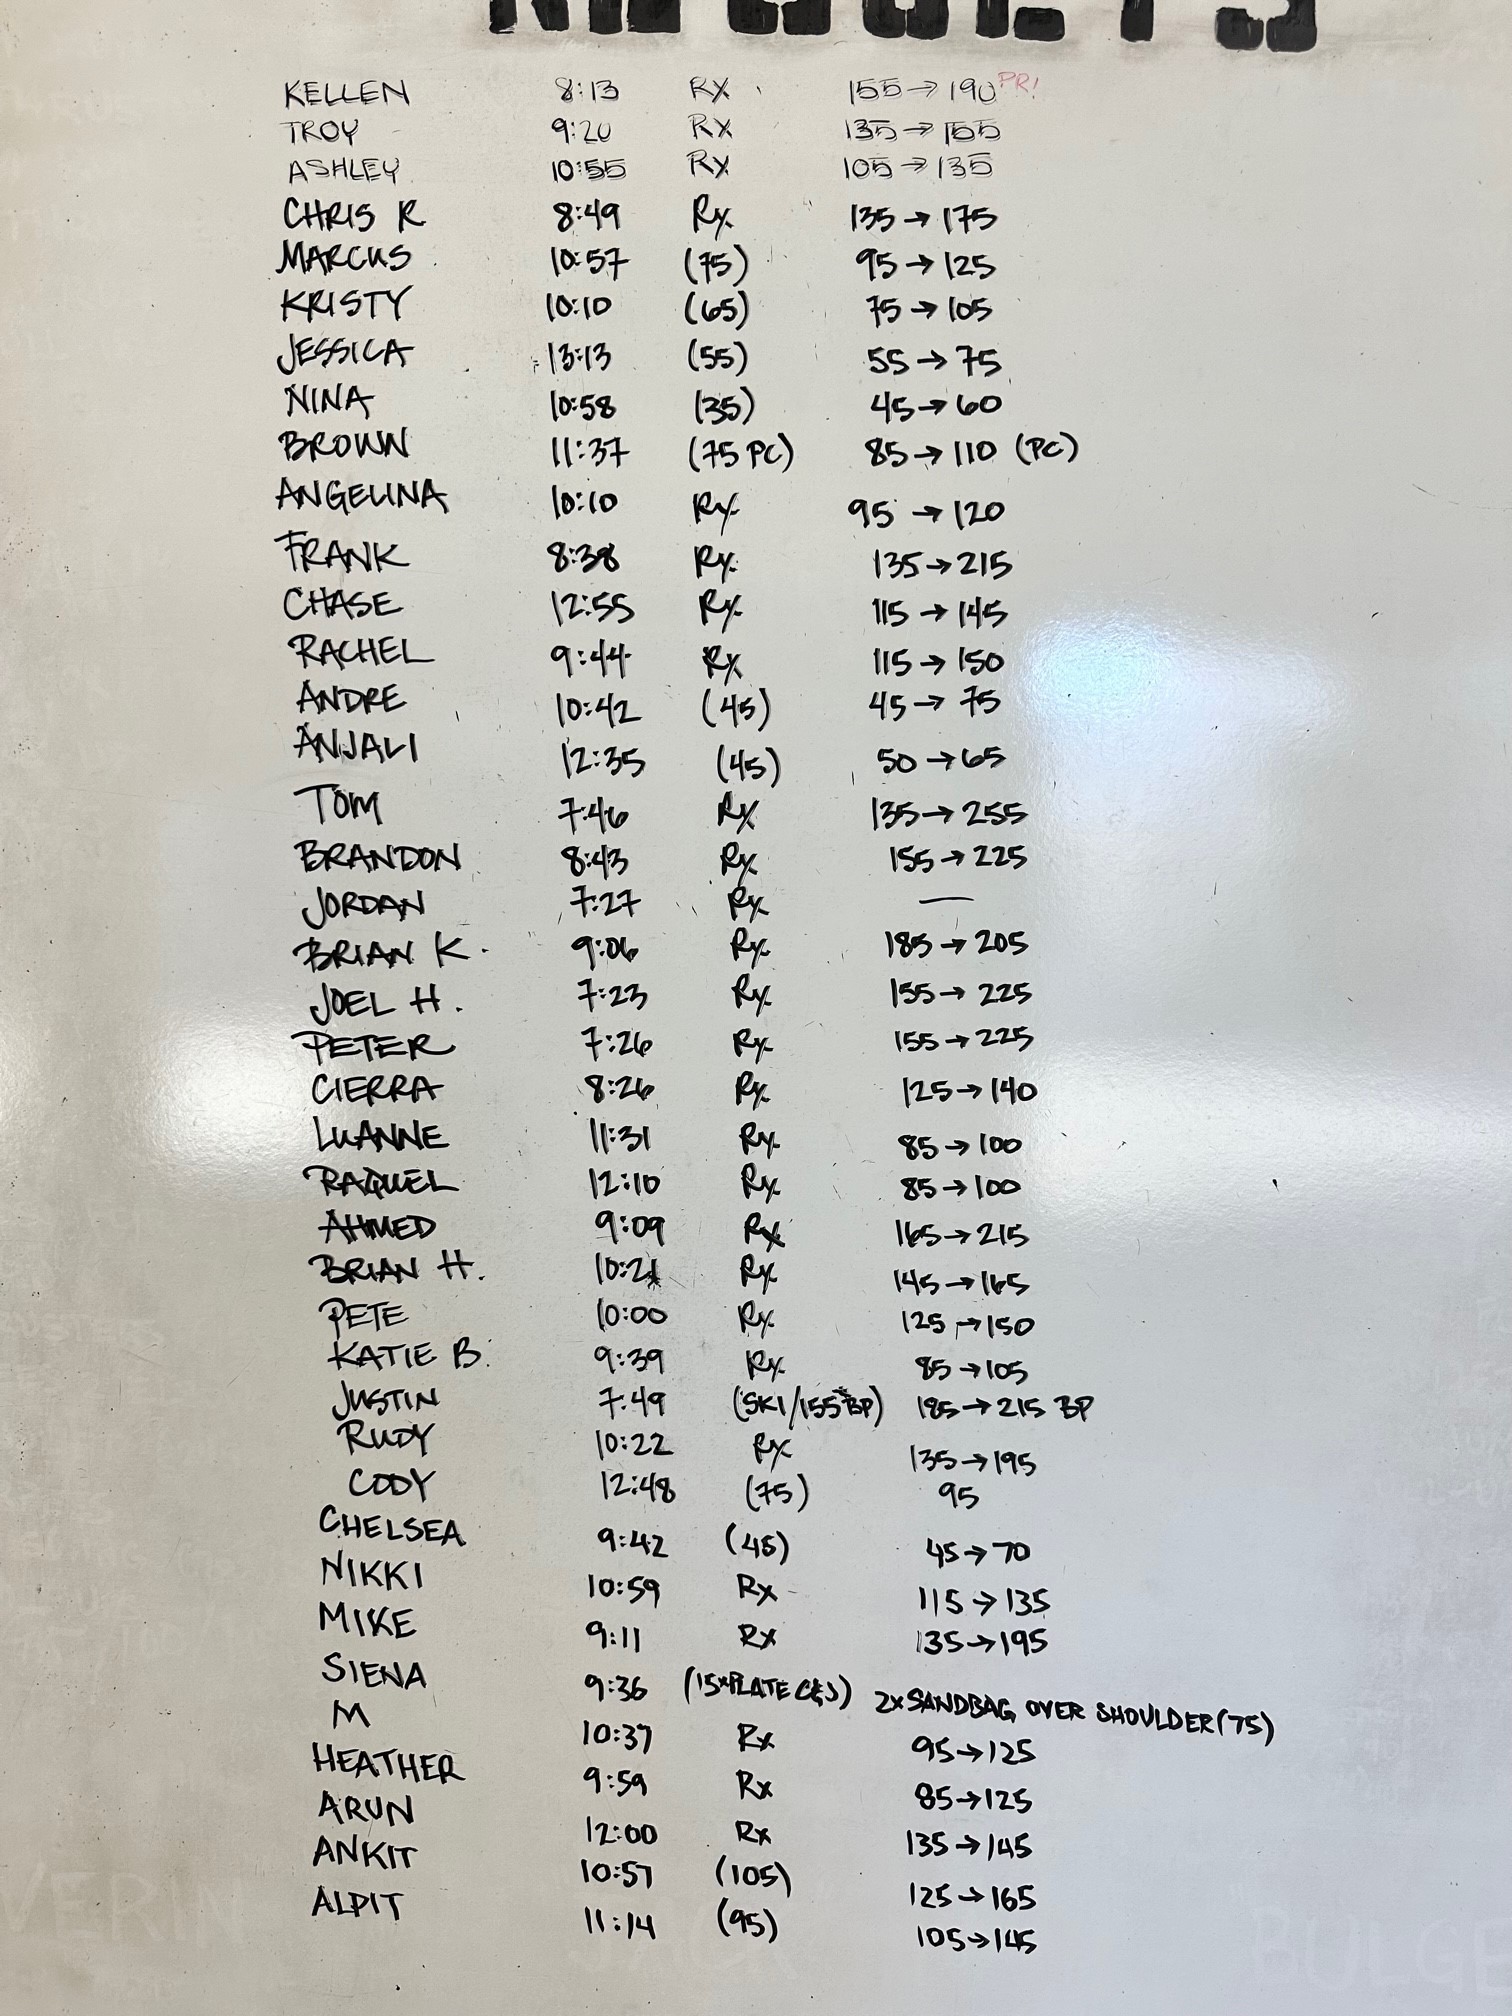 RESULTS
KELLEN 8:13 RX 155→190 PR!
TROY 9:20 RX 135→155
ASHLEY 10:55 RX 105→135
CHRIS R 8:49 Rx 135→175
MARCUS 10:57 (75) 95→125
KRISTY 10:10 (65) 75→105
JESSICA 13:13 (55) 55→75
NINA 10:58 (35) 45→60
BROWN 11:37 (75 PC) 85→110 (PC)
ANGELINA 10:10 Rx 95→120
FRANK 8:38 Rx 135→215
CHASE 12:55 Rx 115→145
RACHEL 9:44 Rx 115→150
ANDRE 10:42 (45) 45→75
ANJALI 12:35 (45) 50→65
TOM 7:46 Rx 135→255
BRANDON 8:43 Rx 155→225
JORDAN 7:27 Rx —
BRIAN K. 9:06 Rx 185→205
JOEL H. 7:23 Rx 155→225
PETER 7:26 Rx 155→225
CIERRA 8:26 Rx 125→140
LUANNE 11:31 Rx 85→100
RAQUEL 12:10 Rx 85→100
AHMED 9:09 Rx 165→215
BRIAN H. 10:21 Rx 145→165
PETE 10:00 Rx 125→150
KATIE B. 9:39 Rx 85→105
JUSTIN 7:49 (SKI/155 BP) 185→215 BP
RUDY 10:22 Rx 135→195
CODY 12:48 (75) 95
CHELSEA 9:42 (45) 45→70
NIKKI 10:59 Rx 115→135
MIKE 9:11 Rx 135→195
SIENA 9:36 (15# PLATE C&J) 2x SANDBAG OVER SHOULDER (75)
M 10:37 Rx 95→125
HEATHER 9:59 Rx 85→125
ARUN 12:00 Rx 135→145
ANKIT 10:57 (105) 125→165
ALPIT 11:14 (95) 105→145